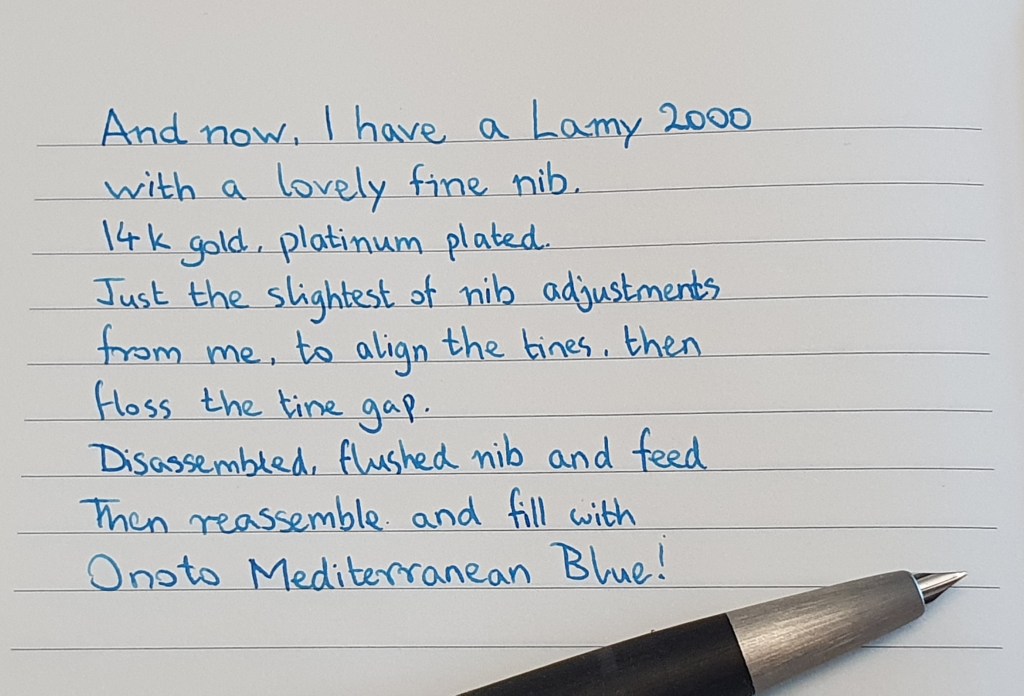 And now, I have a Lamy 2000
with a lovely fine nib.
14k gold, platinum plated.
Just the slightest of nib adjustments
from me, to align the tines, then
floss the tine gap.
Disassembled, flushed nib and feed
Then reassemble and fill with
Onoto Mediterranean Blue!